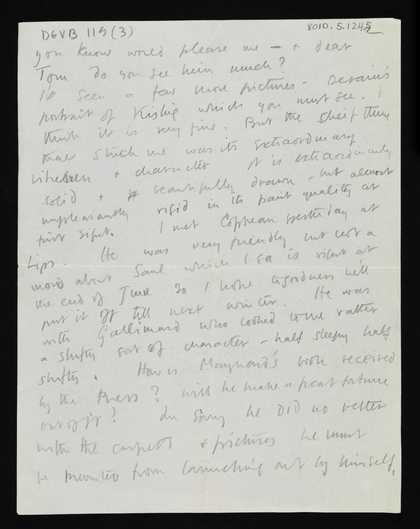 DGVB 119 (3) 8010.5.1245
you know would please me — & dear
Tom do you see him much?
I've seen a few more pictures - Derain's
portrait of Kisling which you must see. I
think it is very fine. But the chief thing
that struck me was its extraordinary
& character it is extraordinarily
solid & beautifully drawn - but almost
unpleasantly rigid in its paint quality at
first sight. I met Copeau yesterday at
Lipp. He was very friendly but not a
word about Saul which I see is down at
the end of June so I hope to goodness he'll
put it off till next winter. He was
with Gallimard who looked to me rather
a shifty sort of character - half sleepy half
shifty. How is Maynard's book received
by the Press? Will he make a great fortune
out of it? I'm sorry he did no better
with the carpets & pictures he must
be prevented from launching out by himself,